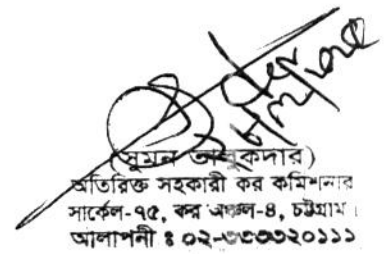 (সুমন তালুকদার)
অতিরিক্ত সহকারী কর কমিশনার
সার্কেল-৭৫, কর অঞ্চল-৪, চট্টগ্রাম।
আলাপনী ঃ ০২-৩৩৩৩২০১১১